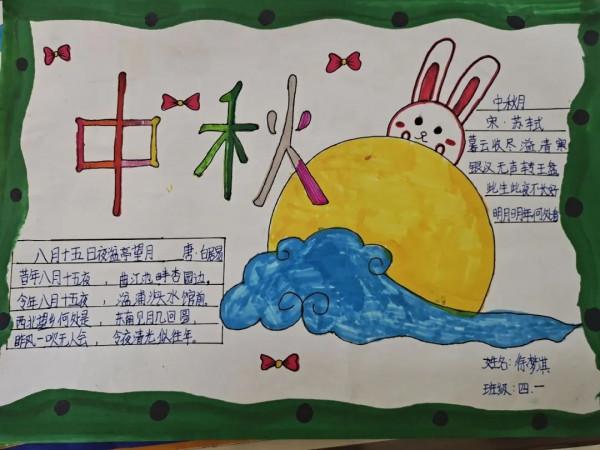 中秋
八月十五日夜湓亭望月 唐·白居易
昔年八月十五夜，曲江池畔杏园边。
今年八月十五夜，湓浦沙头水馆前。
西北望乡何处是，东南见月几回圆。
昨风一吹无人会，今夜清光似往年。
中秋月
宋·苏轼
暮云收尽溢清寒
银汉无声转玉盘
此生此夜不长好
明月明年何处看
姓名：徐梦淇
班级：四.一